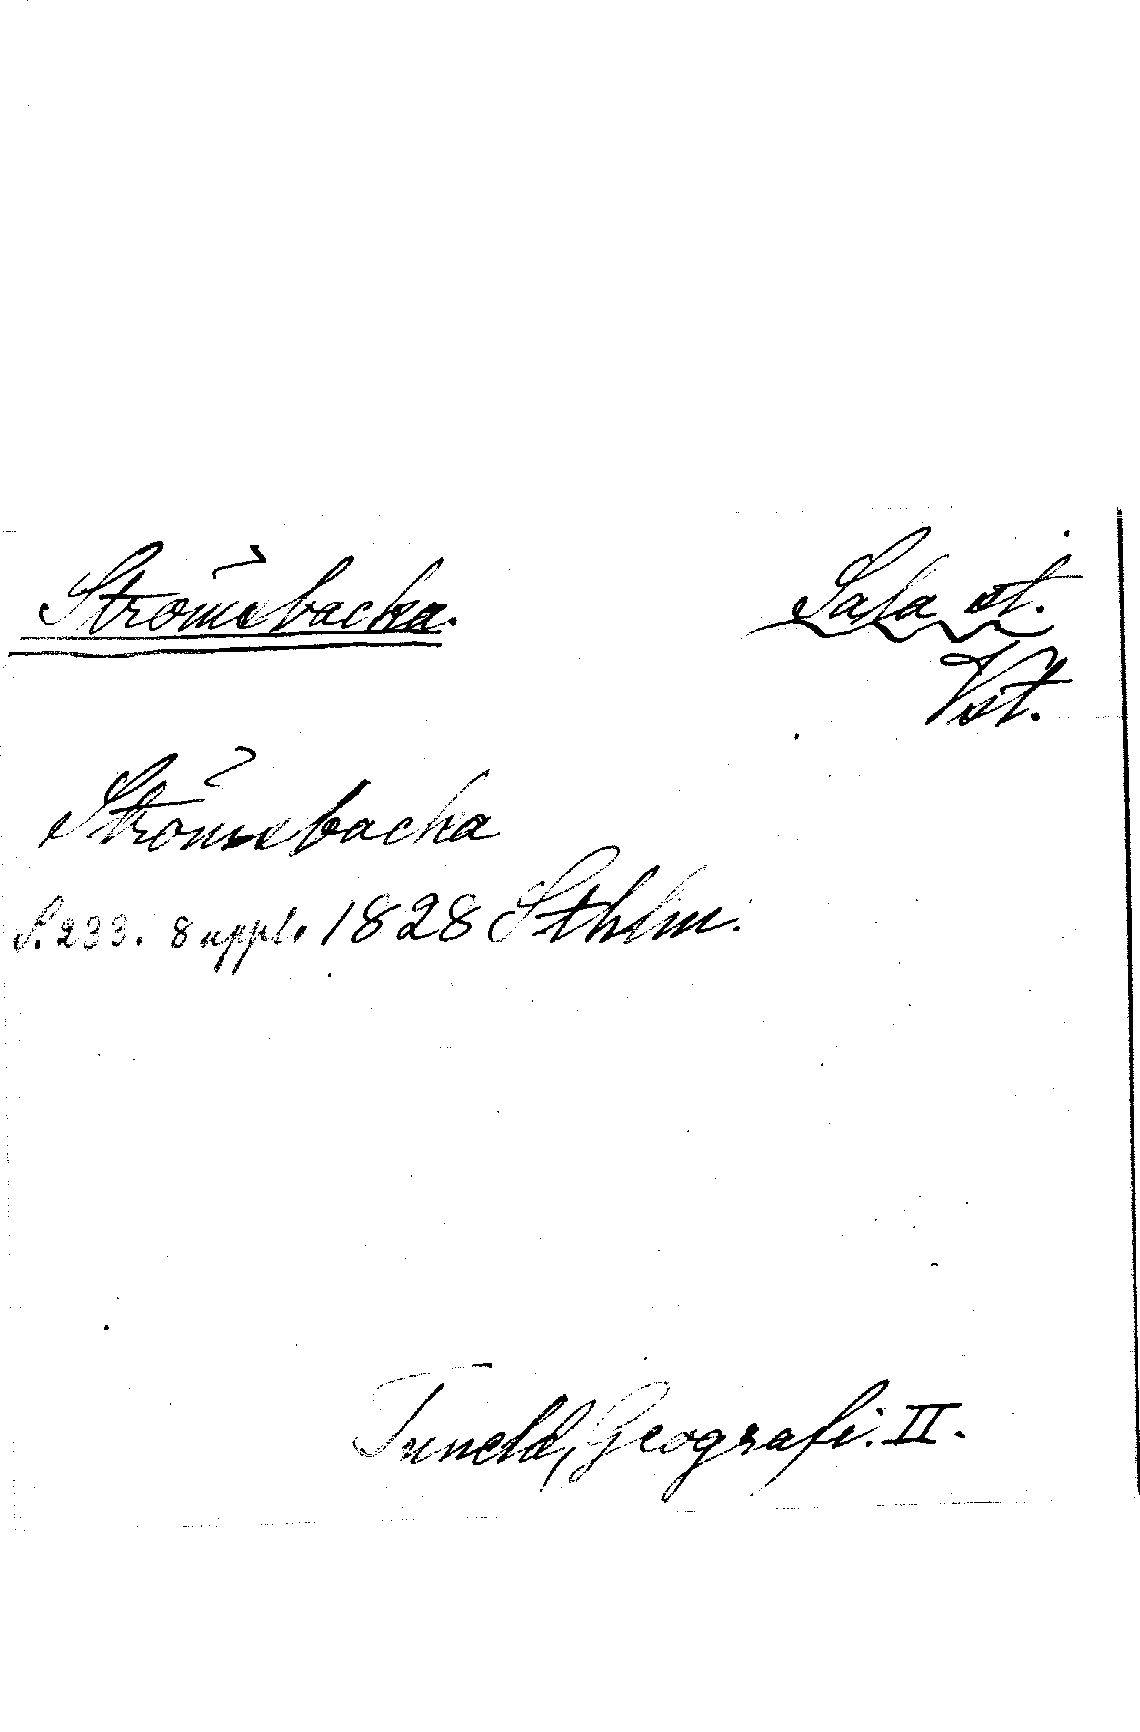 Strömsbacka. Sala st.
Vst.
Strömsbacka
S. 233. 8 uppl. 1828 Sthlm.
Tuneld, Geografi. II.